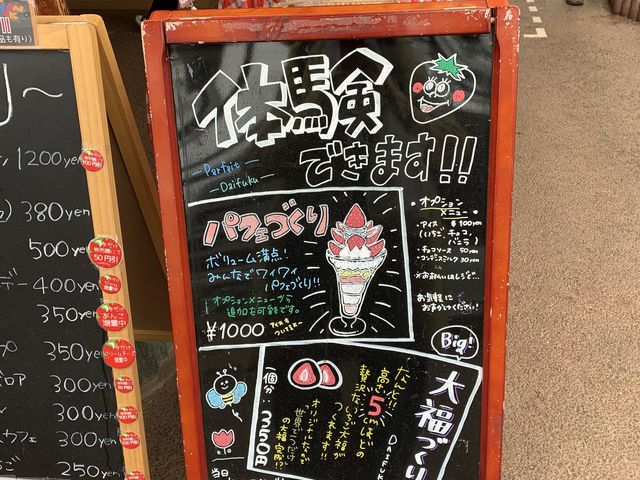 品も有り)
り〜
1200yen
380yen
500yen
400yen
350yen
350yen
300yen
300yen
ウフェ 300yen
250yen
50円引
増量中
体験
できます!!
Parfait
Daifuku
パフェづくり
ボリューム満点!
みんなでワイワイ
パフェづくり!!
オプションメニューから
追加も可能です。
¥1000
オプション
メニュー
・アイス ¥100yen
(いちご、チョコ、
バニラ)
チョコソース 50yen
コンデンスミルク 30yen
お気軽に
おまかせください!
Big!
大福づくり
DAIFUK
なんと!!
高さ5cmほどの
贅沢な
いちご大福が
つくれます!!
オリジナルなので
世界に一つだけ
の大福
一個分 350円
当日